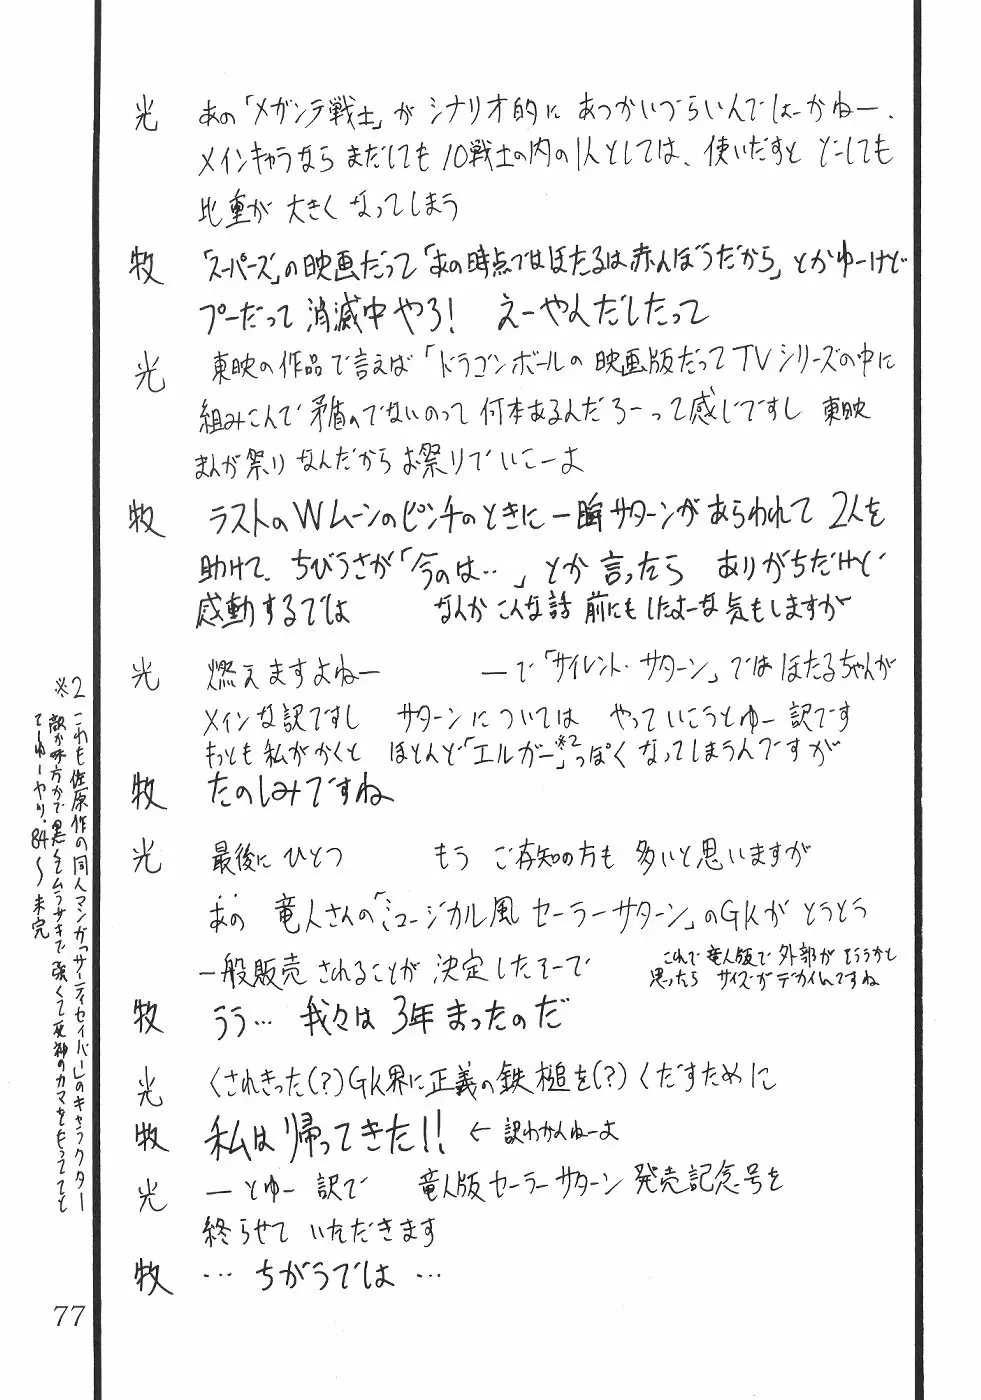 光 あの「メガンテ戦士」が シナリオ的に あつかいづらいんでしょーかねー、
メインキャラなら まだしても 10戦士の内の1人としては、使いだすと どーしても
比重が 大きく なってしまう
牧 「スーパーズ」の映画だって「あの時点ではほたるは赤んぼうだから」とかゆーけど
プーだって 消滅中やろ! えーやんだしたって
光 東映の作品で言えば「ドラゴンボールの映画版だってTVシリーズの中に
組みこんで矛盾のでないのって 何本あるんだろーって感じですし 東映
まんが祭り なんだから お祭りでいこーよ
牧 ラストのWムーンのピンチのときに 一瞬サターンがあらわれて 2人を
助けて、ちびうさが「今のは‥」とか 言ったら ありがちだけど
感動するでは なんか こんな話 前にもしたよーな気もしますが
光 燃えますよねー ーで「サイレント・サターン」では ほたるちゃんが
メインな訳ですし サターンについては やっていこうとゆー訳です
もっとも私がかくと ほとんど「エルガー」※2っぽく なってしまうんですが
牧 たのしみですね
光 最後に ひとつ もう ご存知の方も 多いと思いますが
あの 竜人さんの「ミュージカル風 セーラーサターン」のGKが とうとう
一般販売 されることが 決定したそーで これで竜人版で 外部が そろうかと
思ったら サイズが デカイんですね
牧 うう… 我々は 3年まったのだ
光 くされきった(?)GK界に正義の鉄槌を(?)くだすために
牧 私は帰ってきた!! ← 訳わかんねーよ
光 ーとゆー 訳で 竜人版セーラーサターン 発売記念号を
終らせて いただきます
牧 … ちがうでは …
※2 これも佐原作の同人マンガ「サイティセイバー」のキャラクター
敵か味方かで黒くてムラサキで強くて死神のカマをもってて
てーゆーヤツ。84〜未完
77